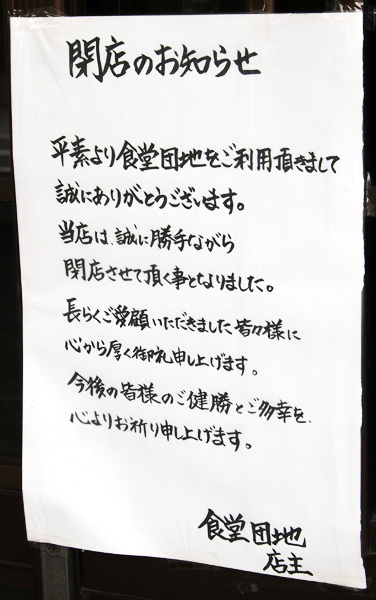 閉店のお知らせ
平素より食堂団地をご利用頂きまして
誠にありがとうございます。
当店は、誠に勝手ながら
閉店させて頂く事となりました。
長らくご愛顧いただきました皆々様に
心から厚く御礼申し上げます。
今後の皆様のご健勝とご多幸を、
心よりお祈り申し上げます。
食堂団地
店主